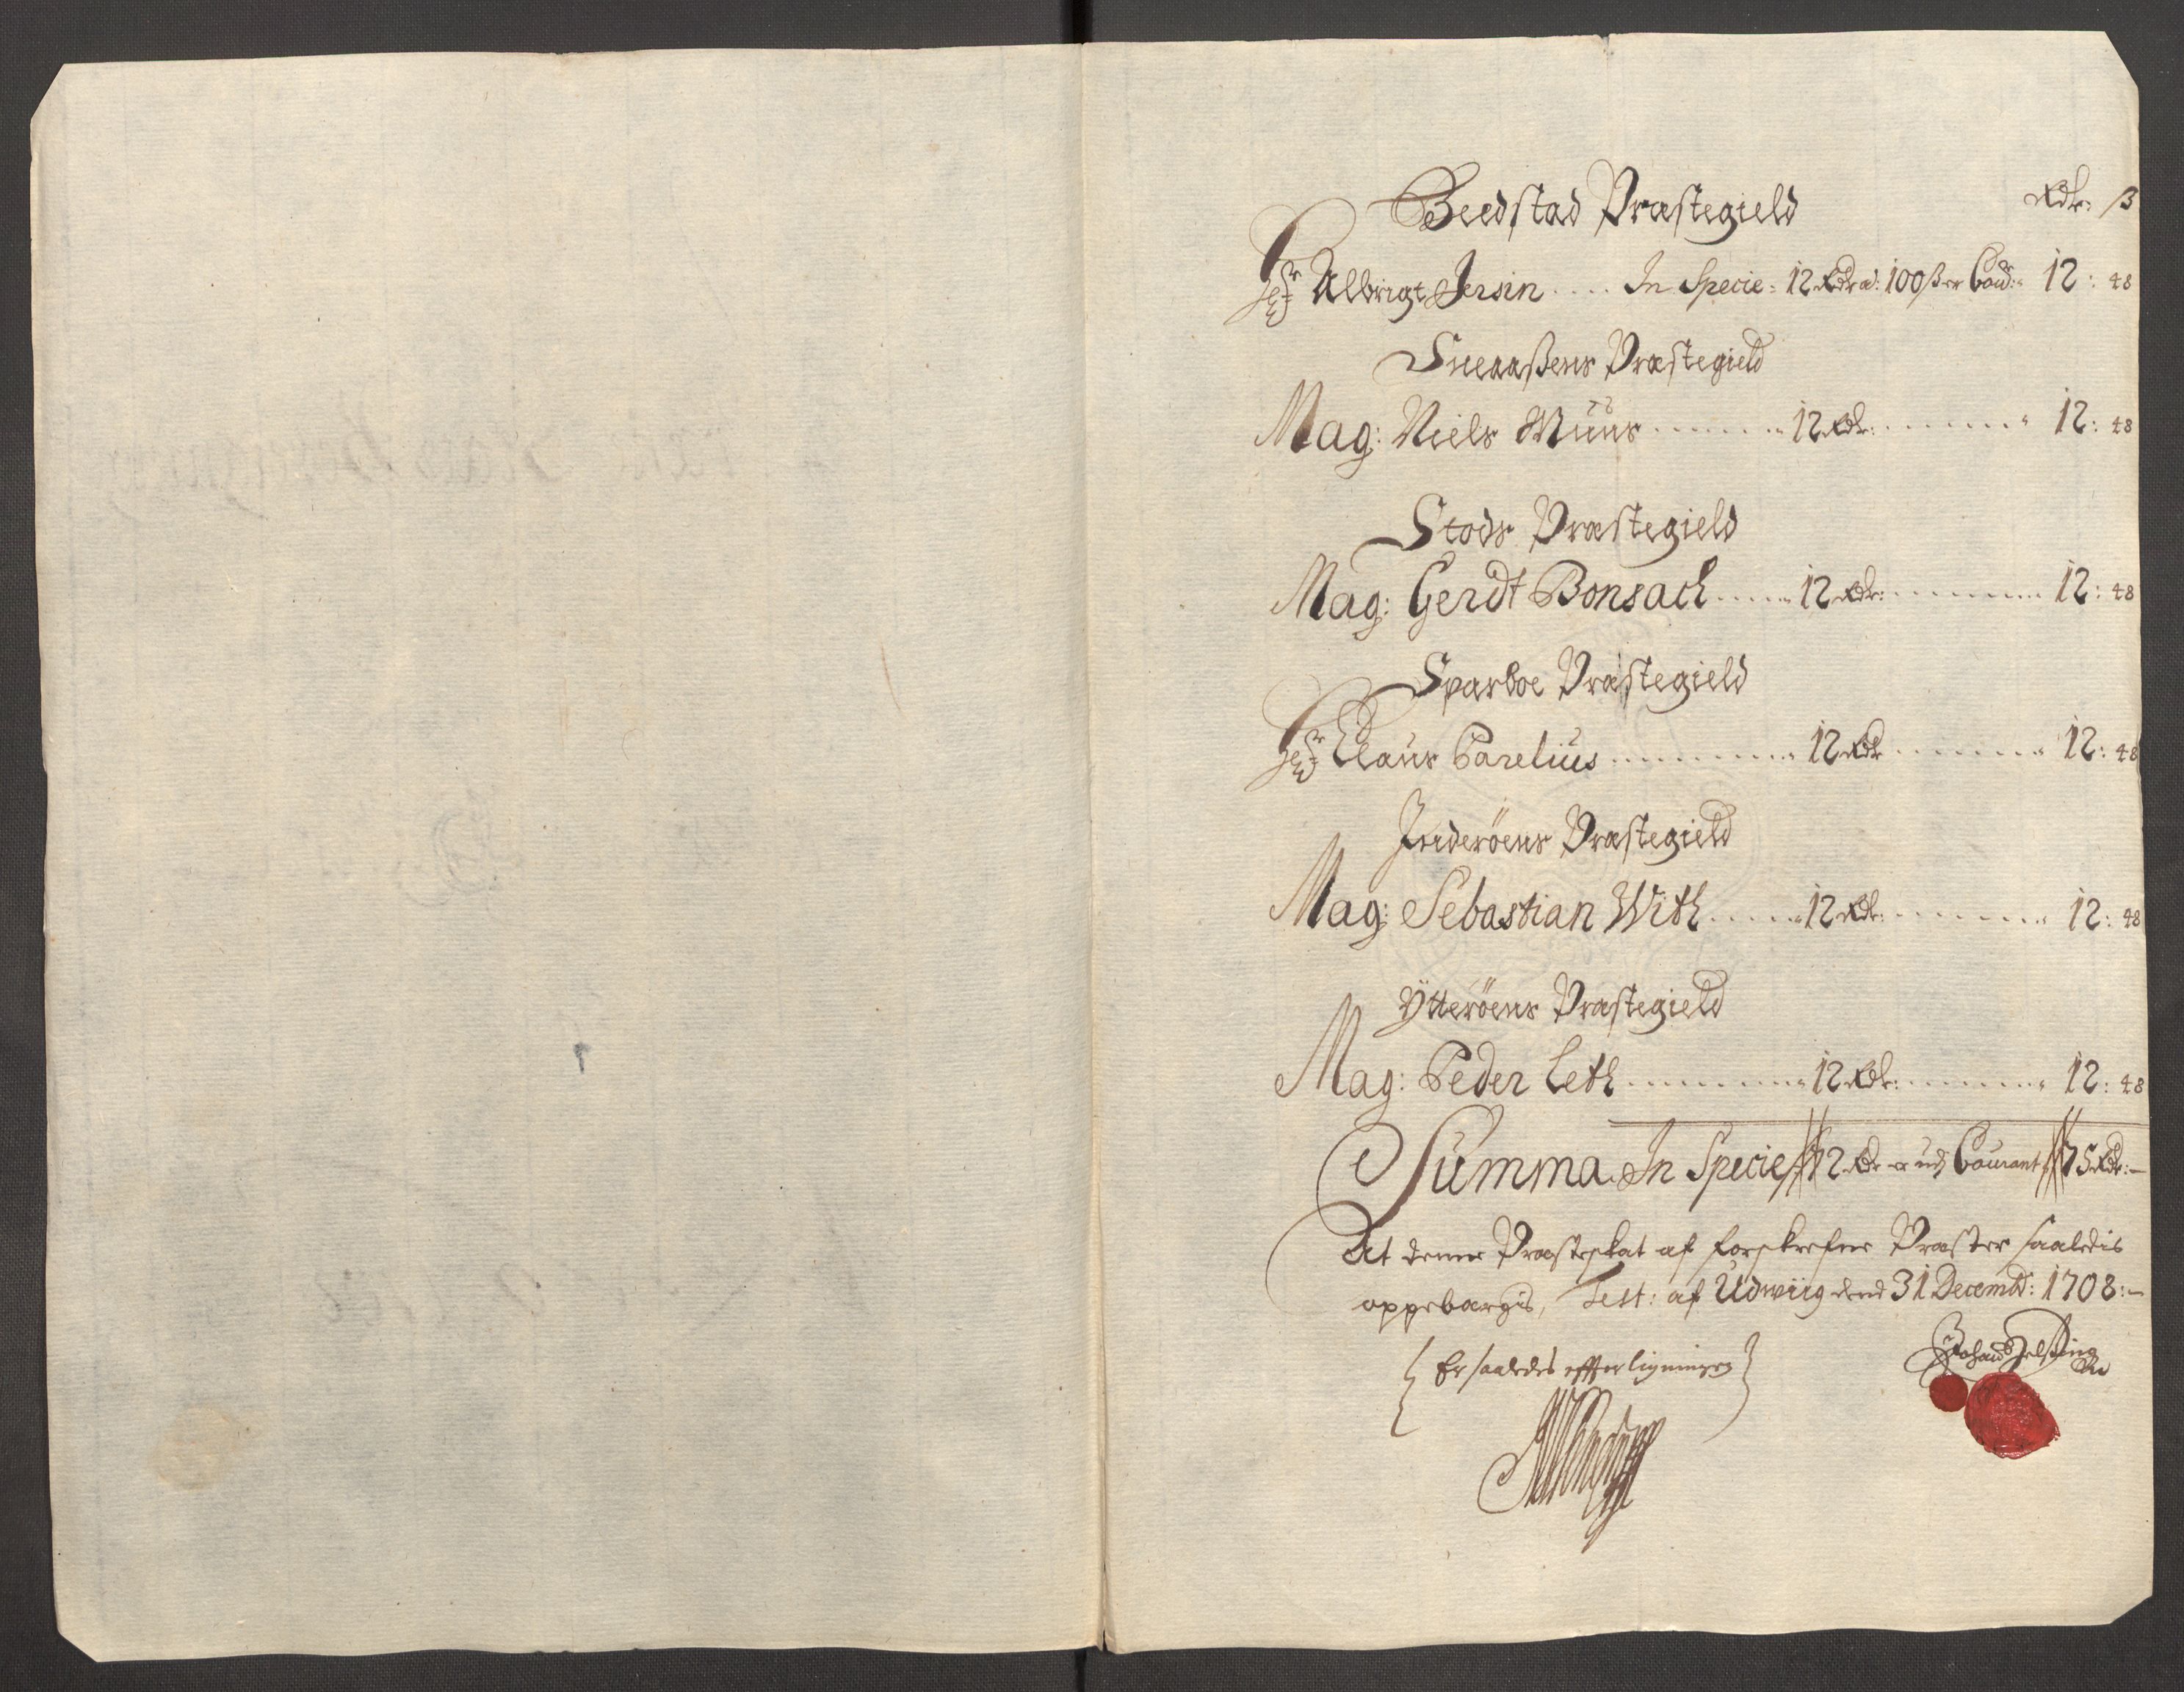 Beedstad Præstegield Rdr: ß
Hr Albrigt Jersin .... In Specie: 12 Rdr a: 100 ß er Coud: 12: 48
Sneaaßens Præstegield
Mag: Niels Muus ...... 12 Rdr: ...... 12: 48
Stods Præstegield
Mag: Gerdt Bonsach ..... 12 Rdr: ...... 12: 48
Sparboe Præstegield
Hr Claus Parelius ........ 12 Rdr ...... 12: 48
Inderöens Præstegield
Mag: Sebastian With ..... 12 Rdr: ...... 12: 48
Ytteröens Præstegield
Mag: Peder Leth ........ 12 Rdr: ...... 12: 48
Summa In Specie 72 Rdr er udj Courant 75 Rdr:-
At denne Præsteskat af forskrefne Præster saaledis
oppebærgis, Test: af Udwiig dend 31 Decembr: 1708:-
Er saaledes effter ligningen